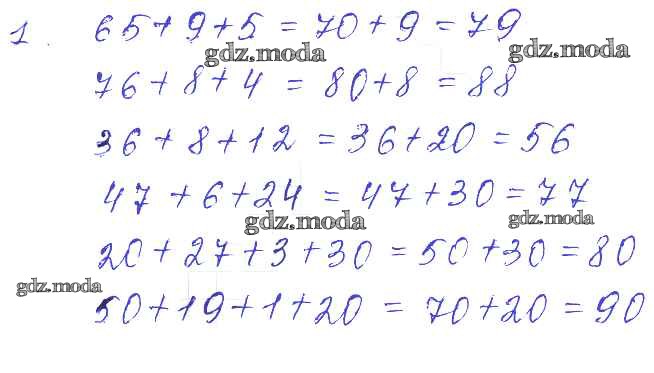 1. 65+9+5=70+9=79
gdz.moda gdz.moda
76+8+4=80+8=88
36+8+12=36+20=56
47+6+24=47+30=77
gdz.moda gdz.moda
20+27+3+30=50+30=80
gdz.moda
50+19+1+20=70+20=90